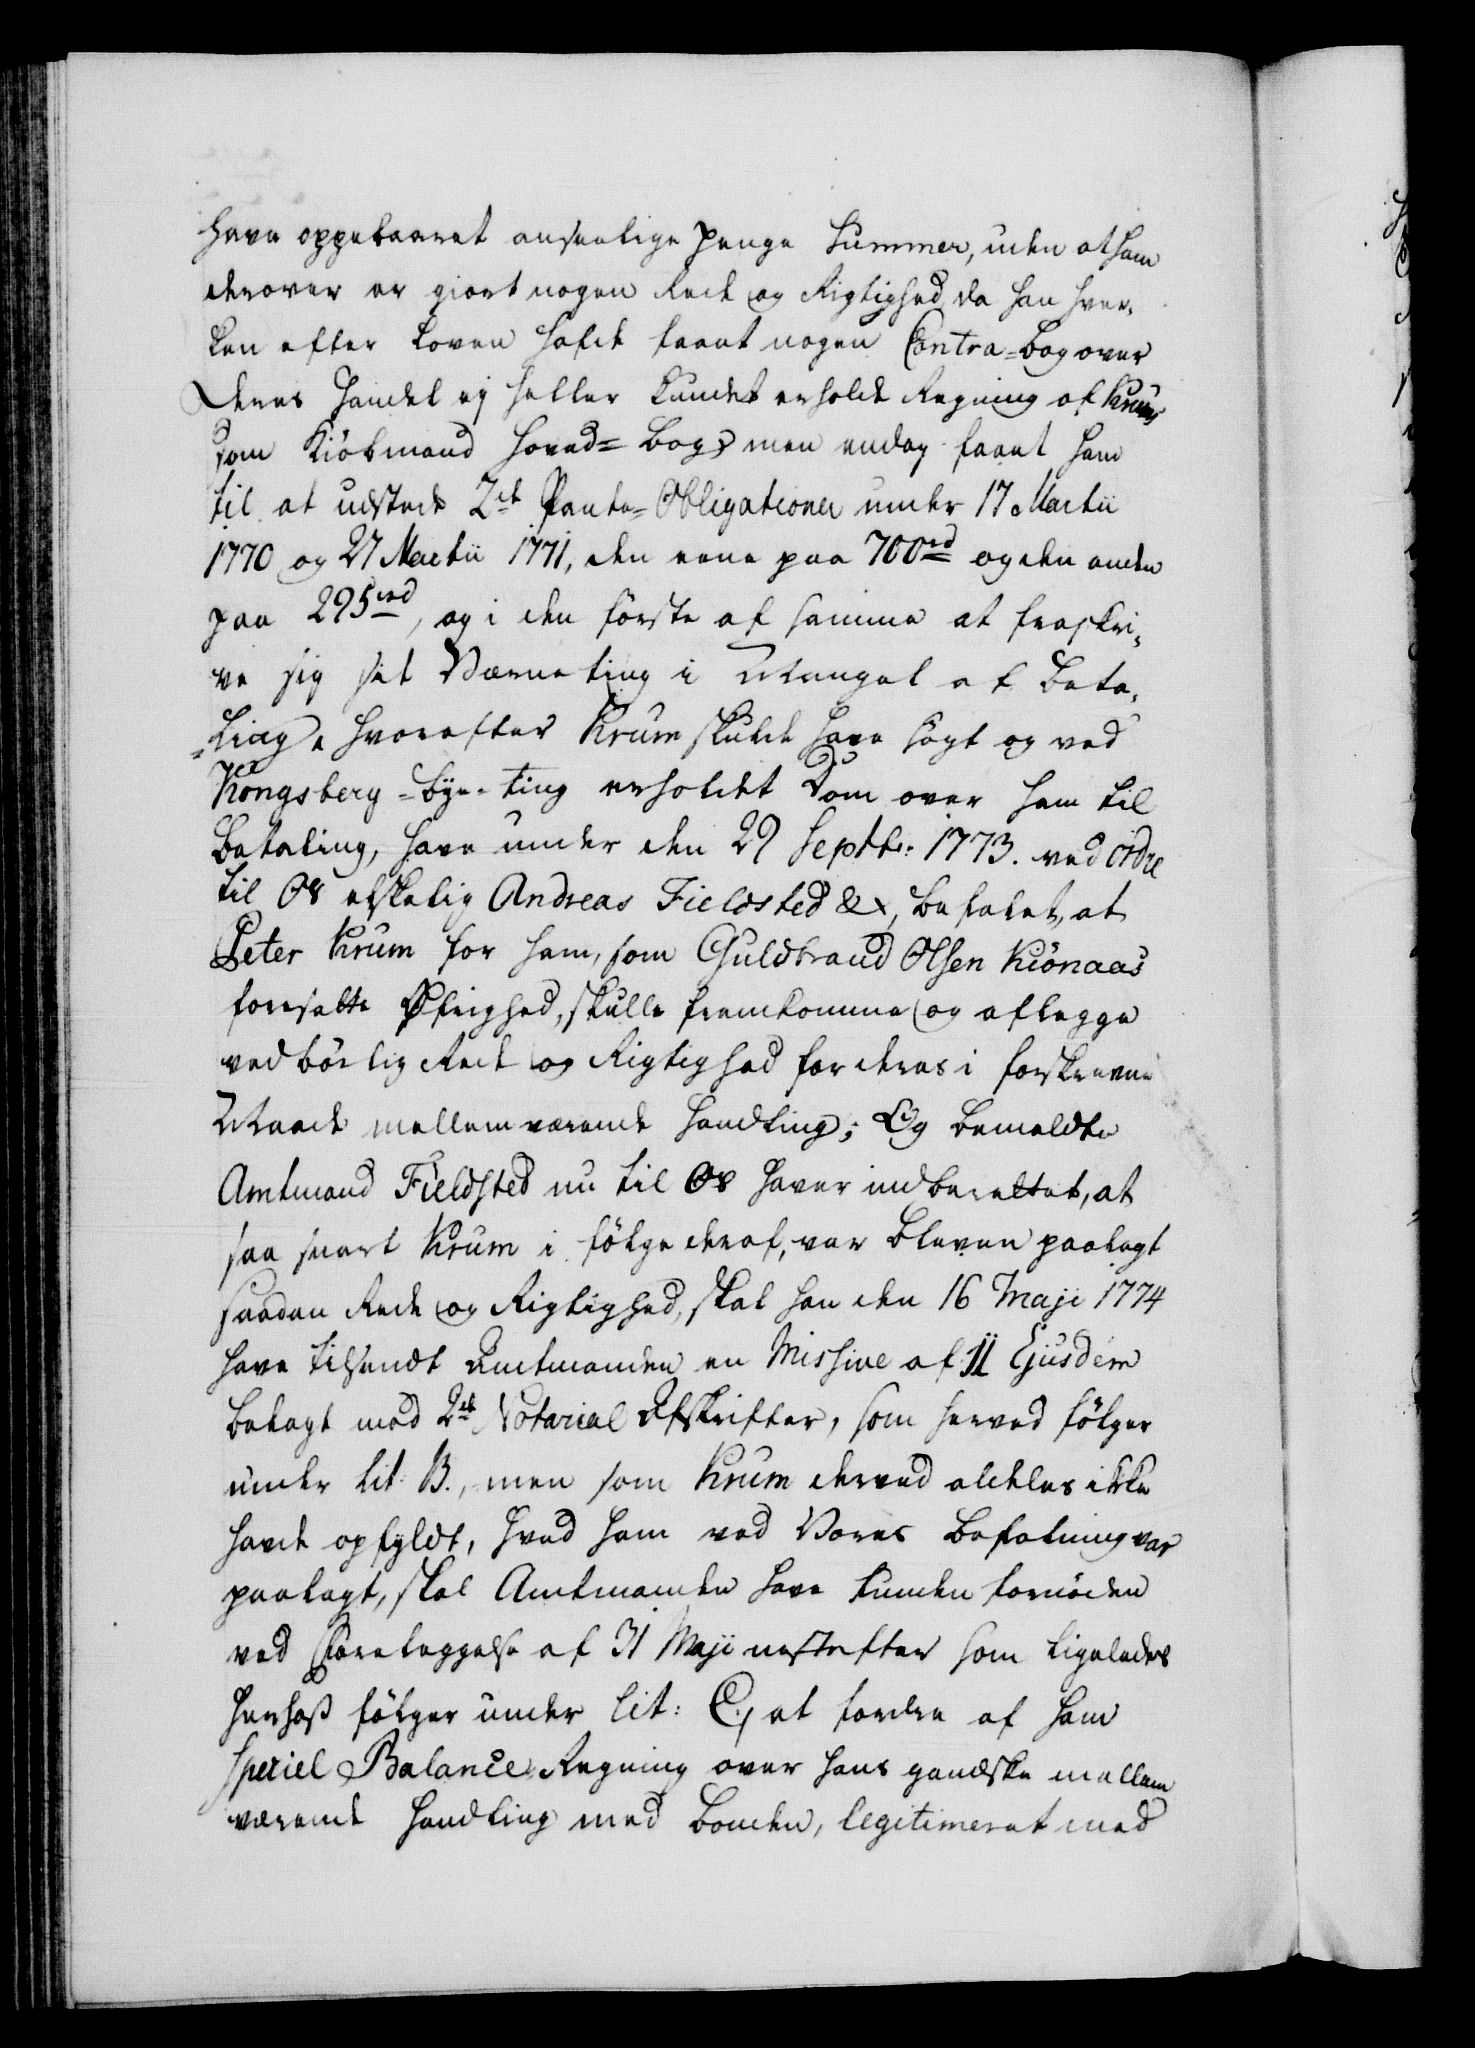 have oppebaaret anseelige Penge Summer, uden at ham
derover er giort nogen Rede og Rigtighed, da han hver-
ken efter Loven hafde faaet nogen Contra-Bog over
deres Handel ej heller kundet erholde Regning af Krums
som Kiöbmand Hoved-Bog, men endog faaet ham
til at udstede 2de Pante-Obligationer under 17 Martii
1770 og 27 Martii 1771, den eene paa 700rd og den anden
paa 295rd, og i den förste af samme at fraskri-
ve sig sit Værneting i Mangel af Beta-
ling, hvorefter Krum skulde have sögt og ved
Kongsberg-Bye-ting erholdet Dom over ham til
Betaling, have under den 29 Septbr: 1773. ved ordre
til Os elskelig Andreas Fieldsted &, befalet, at
Peter Krum for ham, som Guldbrand Olsen Kiönaas
foresatte Öfrighed, skulle fremkomme og aflegge
vedbörlig Rede og Rigtighed for deres i forskrevne
Maade mellemværende Handling; Og bemeldte
Amtmand Fieldsted nu til Os haver indberettet, at
saa snart Krum i fölge deraf, var bleven paalagt
saadan Rede og Rigtighed, skal han den 16 Maji 1774
have tilsendt Amtmanden en Missive af 11 Ejusdem
belagt med 2de Notarial Afskrifter, som herved fölger
under Lit: B., men som Krum derved aldeles ikke
havde opfyldt, hvad ham ved Vores Befalning var
paalagt, skal Amtmanden have funden fornöden
ved Foreleggelse af 31 Maji nestefter som ligeledes
herhoss fölger under Lit: C, at fordre af ham
speciel Balance Regning over hans gandske mellem
værende Handling med Bonden, legitimeret med